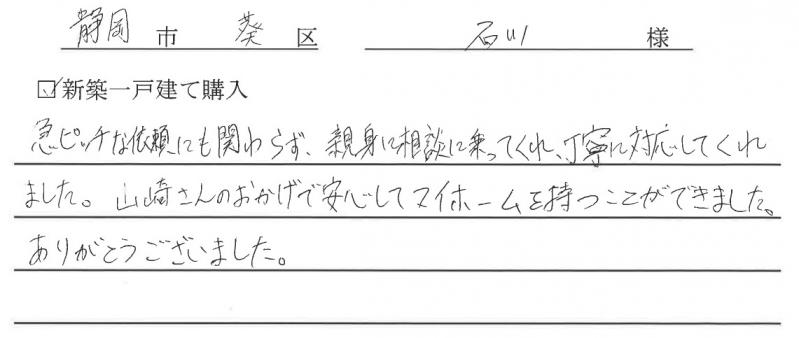 静岡 市 葵 区 石川 様
☑新築一戸建て購入
急ピッチな依頼にも関わらず、親身に相談に乗ってくれ、丁寧に対応してくれ
ました。山崎さんのおかげで安心してマイホームを持つことができました。
ありがとうございました。